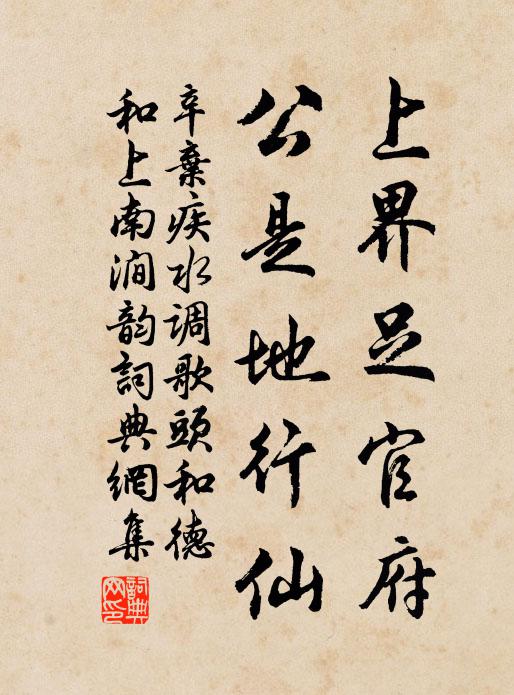 上界足官府
公是地行仙
辛棄疾水调歌頭和德
和上南涧韵詞典網集
詞典网印